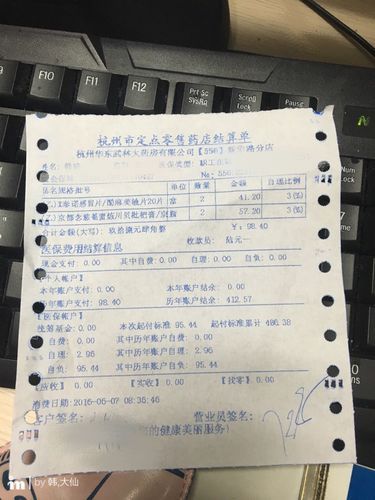 F9
F10
F11
F12
Prt Sc
SysRq
Scroll
Lock
Pause
Break
杭州市定点零售药店结算单
杭州华东武林大药房有限公司【556】 分店
姓名: 医保类型: 职工
No: 556
品名规格批号 单位 数量 金额 自理比例
诺感冒片/酚麻美敏片20 盒 2 41.20 3(%)
京都念慈菴蜜炼川贝枇杷膏/ 瓶 2 57.20 3(%)
合计金额(大写): 玖拾捌元肆角整 ¥: 98.40
医保费用结算信息 收款员: 陆元一
现金支付: 0.00 其中自费: 0.00 自理: 0.00 自负: 0.00
【个人帐户】
本年账户支付: 0.00 本年账户结余: 0.00
历年账户支付: 98.40 历年账户结余: 412.57
【医保帐户】
统筹基金: 0.00 本次起付标准 95.44 起付标准累计 486.38
自费: 0.00 其中历年账户自费: 0.00
自理: 2.96 其中历年账户自理: 2.96
自负: 95.44 其中历年账户自负: 95.44
【应收】 0.00 【实收】 0.00 【找零】 0.00
消费日期:2016-05-07 08:35:46
客户签名: 营业员签名:
的健康美丽服务)
m by 韩,大仙